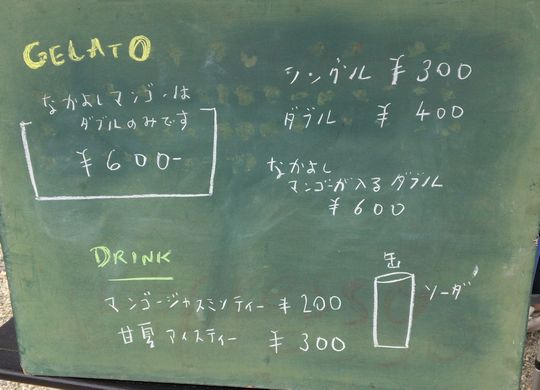 GELATO
なかよしマンゴーは
ダブルのみです
¥600-
シングル ¥300
ダブル ¥400
なかよし
マンゴーが入るダブル
¥600
DRINK
マンゴージャスミンティー ¥200
甘夏アイスティー ¥300
缶
ソーダ